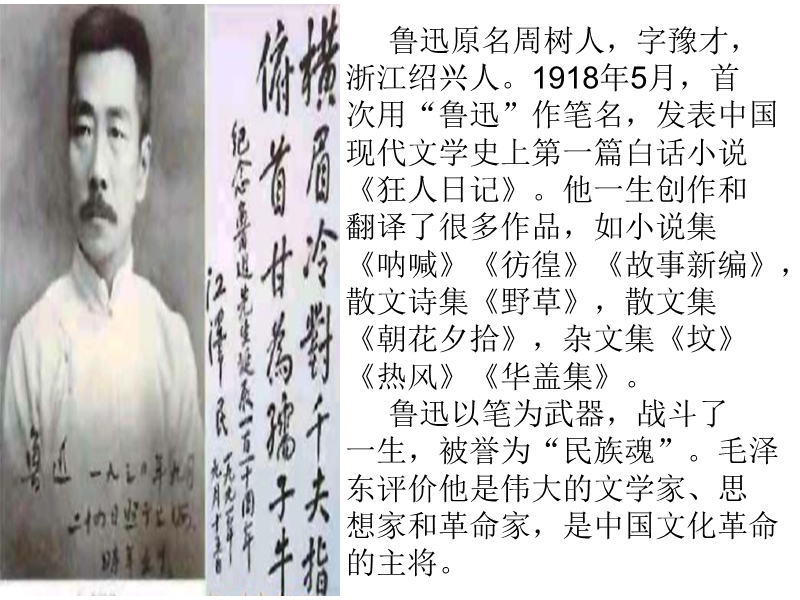 鲁迅 一九三〇年九月
二十四日照于上海
时年五十
横眉冷對千夫指
俯首甘為孺子牛
纪念鲁迅先生诞辰一百一十周年
江澤民
一九九一年
九月十五日
鲁迅原名周树人，字豫才，
浙江绍兴人。1918年5月，首
次用“鲁迅”作笔名，发表中国
现代文学史上第一篇白话小说
《狂人日记》。他一生创作和
翻译了很多作品，如小说集
《呐喊》《彷徨》《故事新编》，
散文诗集《野草》，散文集
《朝花夕拾》，杂文集《坟》
《热风》《华盖集》。
鲁迅以笔为武器，战斗了
一生，被誉为“民族魂”。毛泽
东评价他是伟大的文学家、思
想家和革命家，是中国文化革命
的主将。